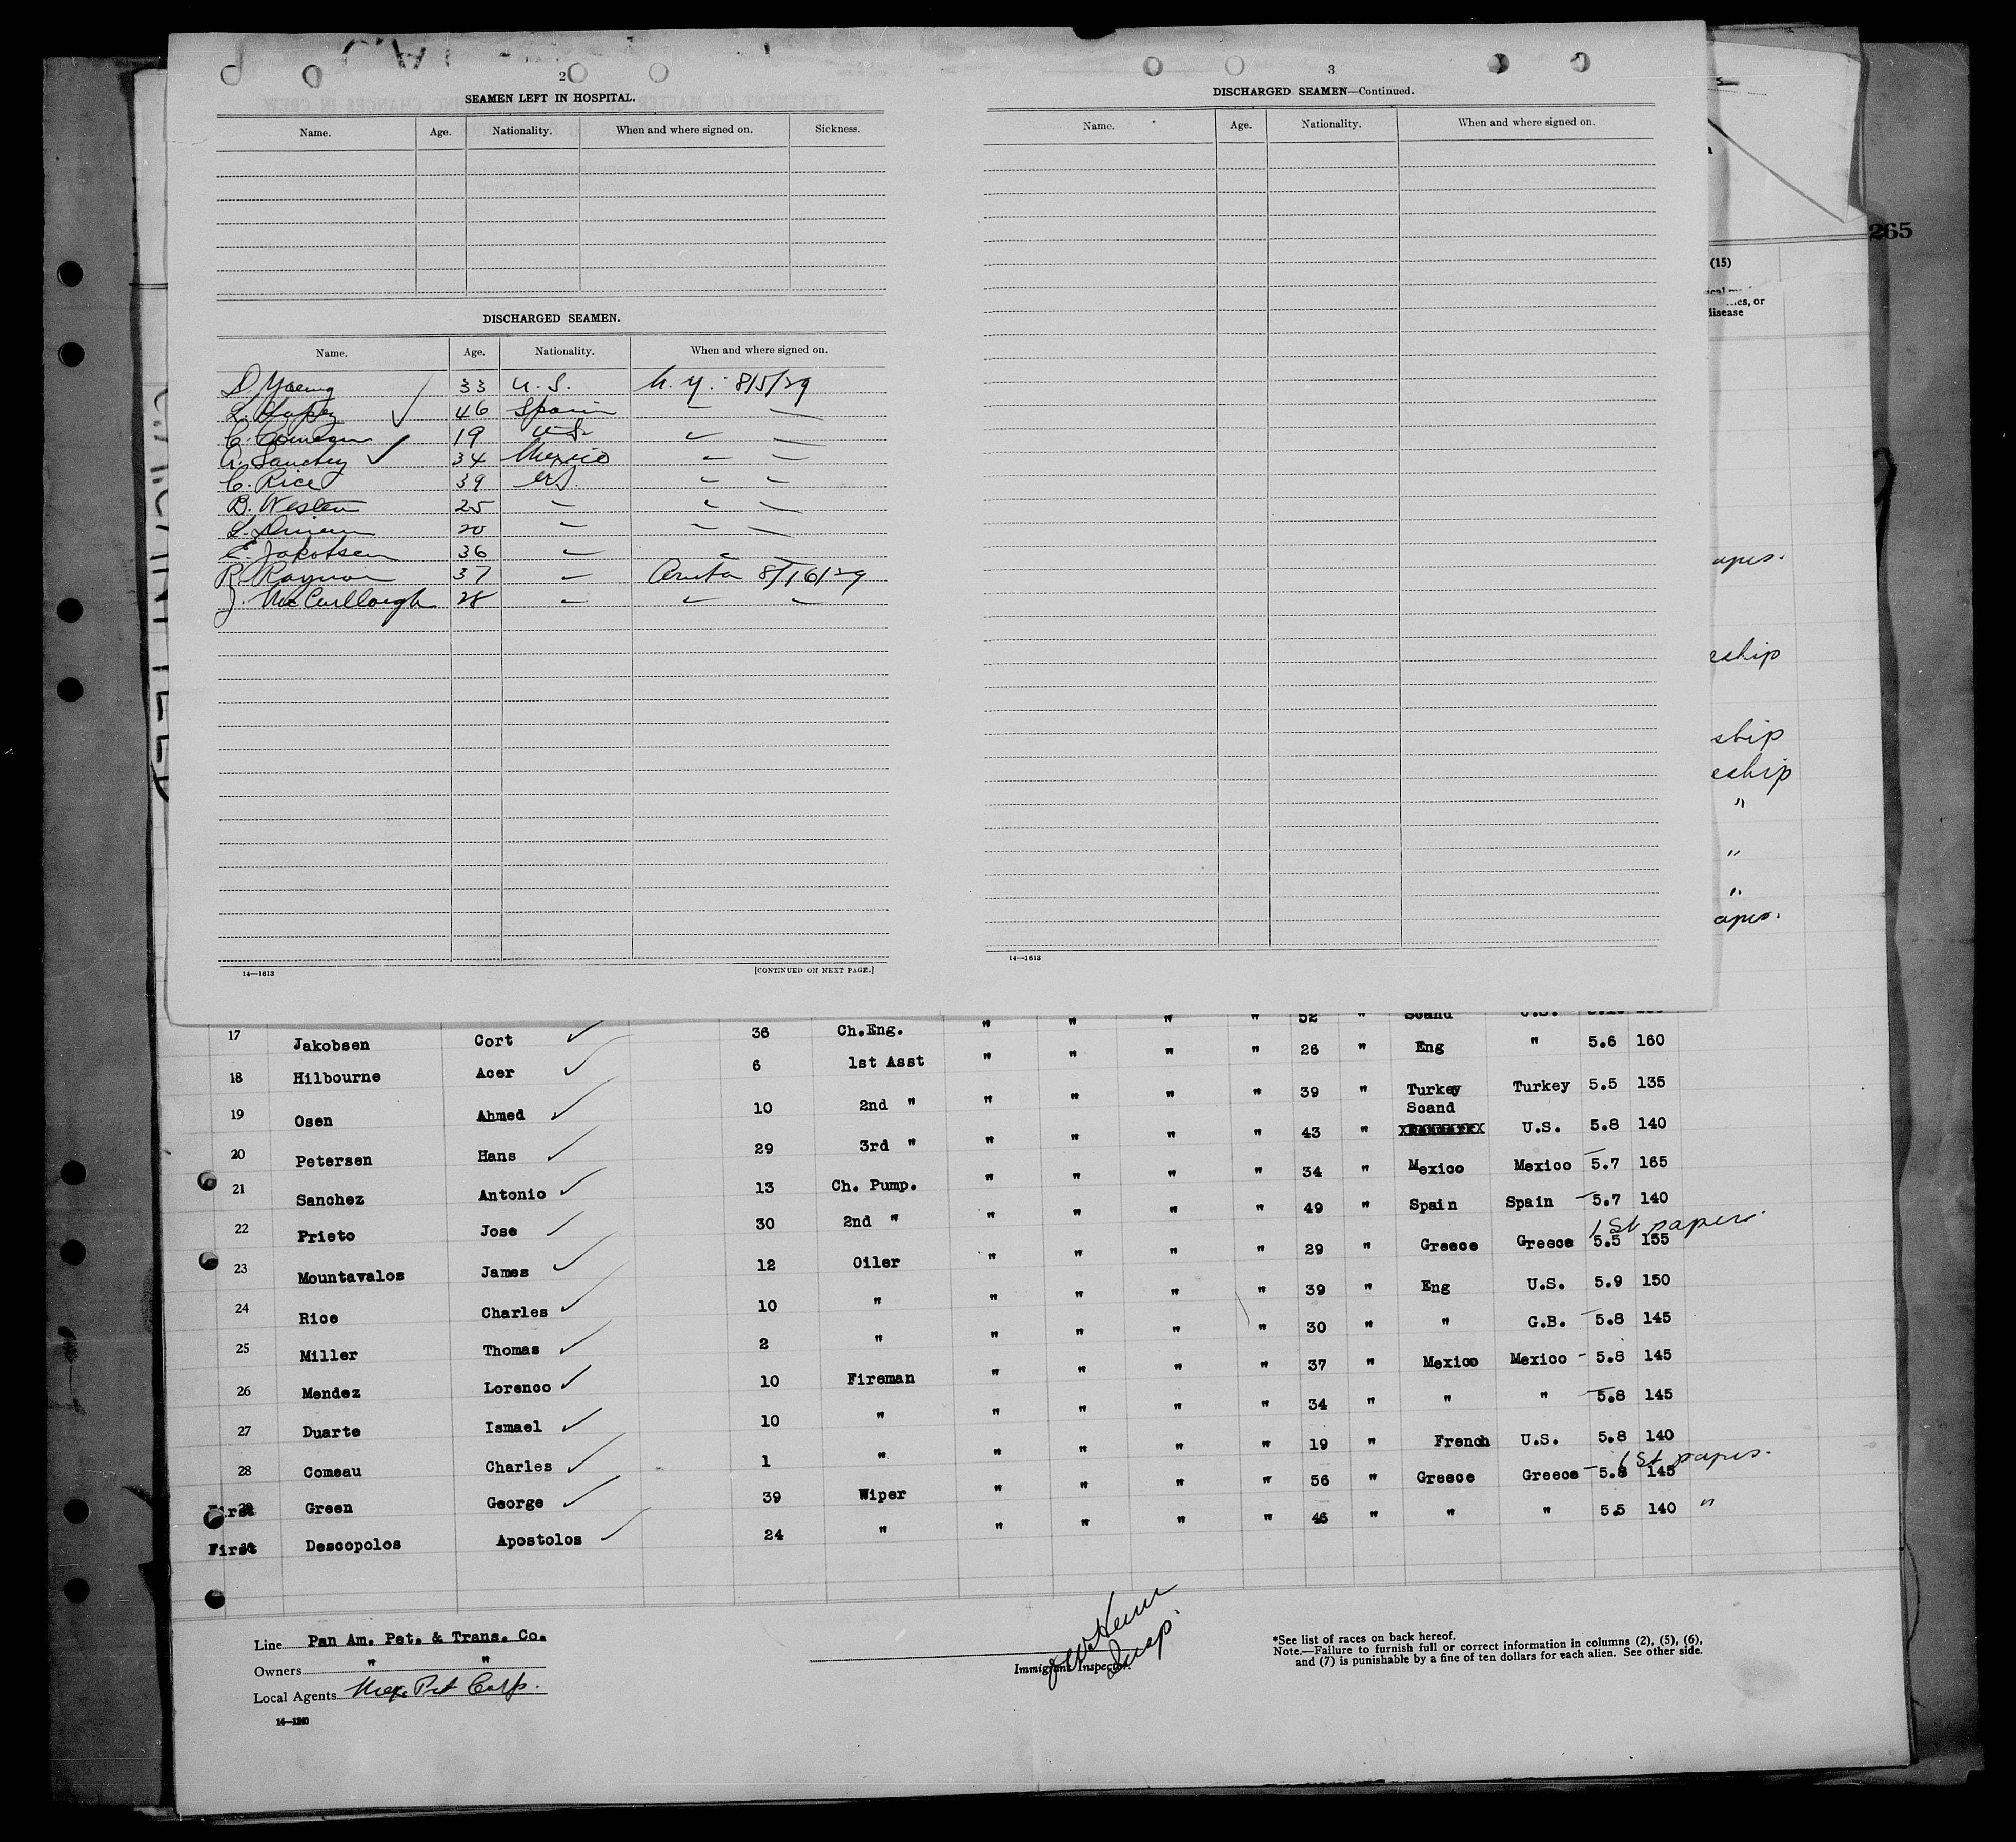 2
SEAMEN LEFT IN HOSPITAL.
Name. Age. Nationality. When and where signed on. Sickness.
DISCHARGED SEAMEN.
Name. Age. Nationality. When and where signed on.
D. Young 33 U.S. N.Y. 8/5/29
L. Lopez 46 Spain " "
C. 19 U.S. " "
A. Sanchez 34 Mexico " "
C. Rice 39 U.S. " "
B. Weston 25 " " "
L. 20 " " "
E. Jakobsen 36 " " "
R. Raynor 37 " Aruba 8/16/29
J. McCullough 28 " " "
14—1613 [CONTINUED ON NEXT PAGE.]
3
DISCHARGED SEAMEN—Continued.
Name. Age. Nationality. When and where signed on.
14—1613
265
(15)
or
disease
"
"
"
52 " Scand U.S.
17 Jakobsen Cort 36 Ch.Eng. " " " " 26 " Eng " 5.6 160
18 Hilbourne Acer 6 1st Asst " " " " 39 " Turkey Turkey 5.5 135
19 Osen Ahmed 10 2nd " " " " " 43 " Scand U.S. 5.8 140
20 Petersen Hans 29 3rd " " " " " 34 " Mexico Mexico 5.7 165
21 Sanchez Antonio 13 Ch. Pump. " " " " 49 " Spain Spain 5.7 140
1st papers.
22 Prieto Jose 30 2nd " " " " " 29 " Greece Greece 5.5 155
23 Mountavalos James 12 Oiler " " " " 39 " Eng U.S. 5.9 150
24 Rice Charles 10 " " " " " 30 " " G.B. 5.8 145
25 Miller Thomas 2 " " " " " 37 " Mexico Mexico 5.8 145
26 Mendez Lorenco 10 Fireman " " " " 34 " " " 5.8 145
27 Duarte Ismael 10 " " " " " 19 " French U.S. 5.8 140
1st papers.
28 Comeau Charles 1 " " " " " 56 " Greece Greece 5.8 145
First 29 Green George 39 Wiper " " " " 46 " " " 5.5 140 "
First 30 Descopolos Apostolos 24 " " " " "
Line Pan Am. Pet. & Trans. Co.
Owners " "
Local Agents Mex. Pet Corp.
14—1240
Insp.
Immigrant Inspector.
*See list of races on back hereof.
Note.—Failure to furnish full or correct information in columns (2), (5), (6),
and (7) is punishable by a fine of ten dollars for each alien. See other side.